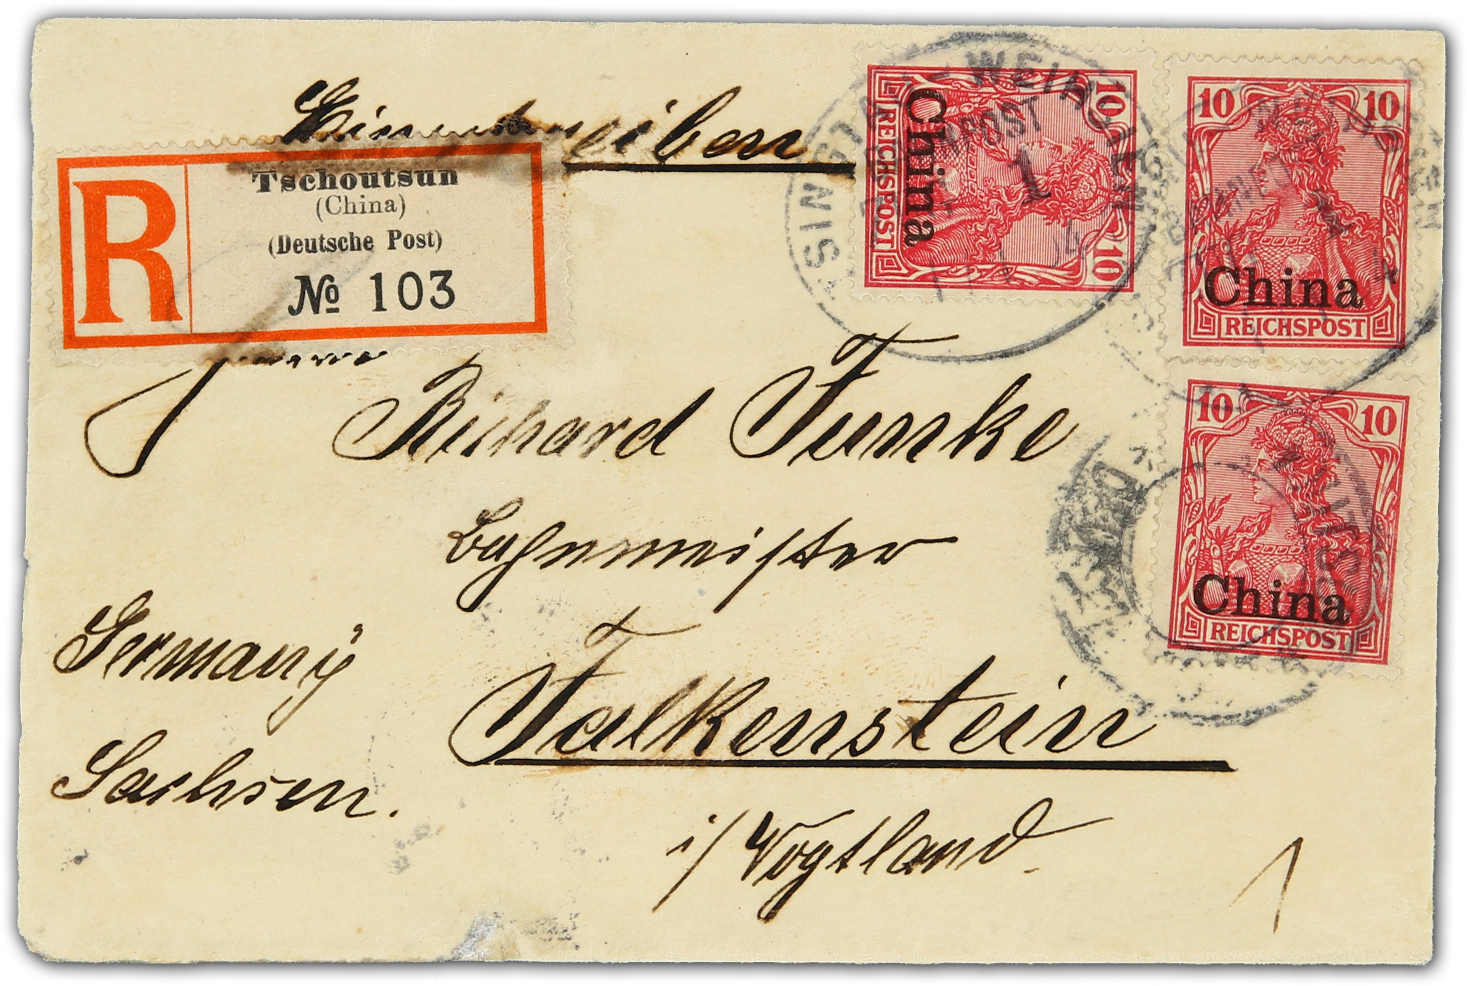 Einschreiben
R
Tschoutsun
(China)
(Deutsche Post)
№ 103
Richard Funke
Bahnmeister
Falkenstein
i/Vogtland.
Germany
Sachsen.
10 10
China
REICHSPOST
10 10
China
REICHSPOST
10 10
China
REICHSPOST
TSINGTAU-WEIHSIEN
BAHNPOST
1